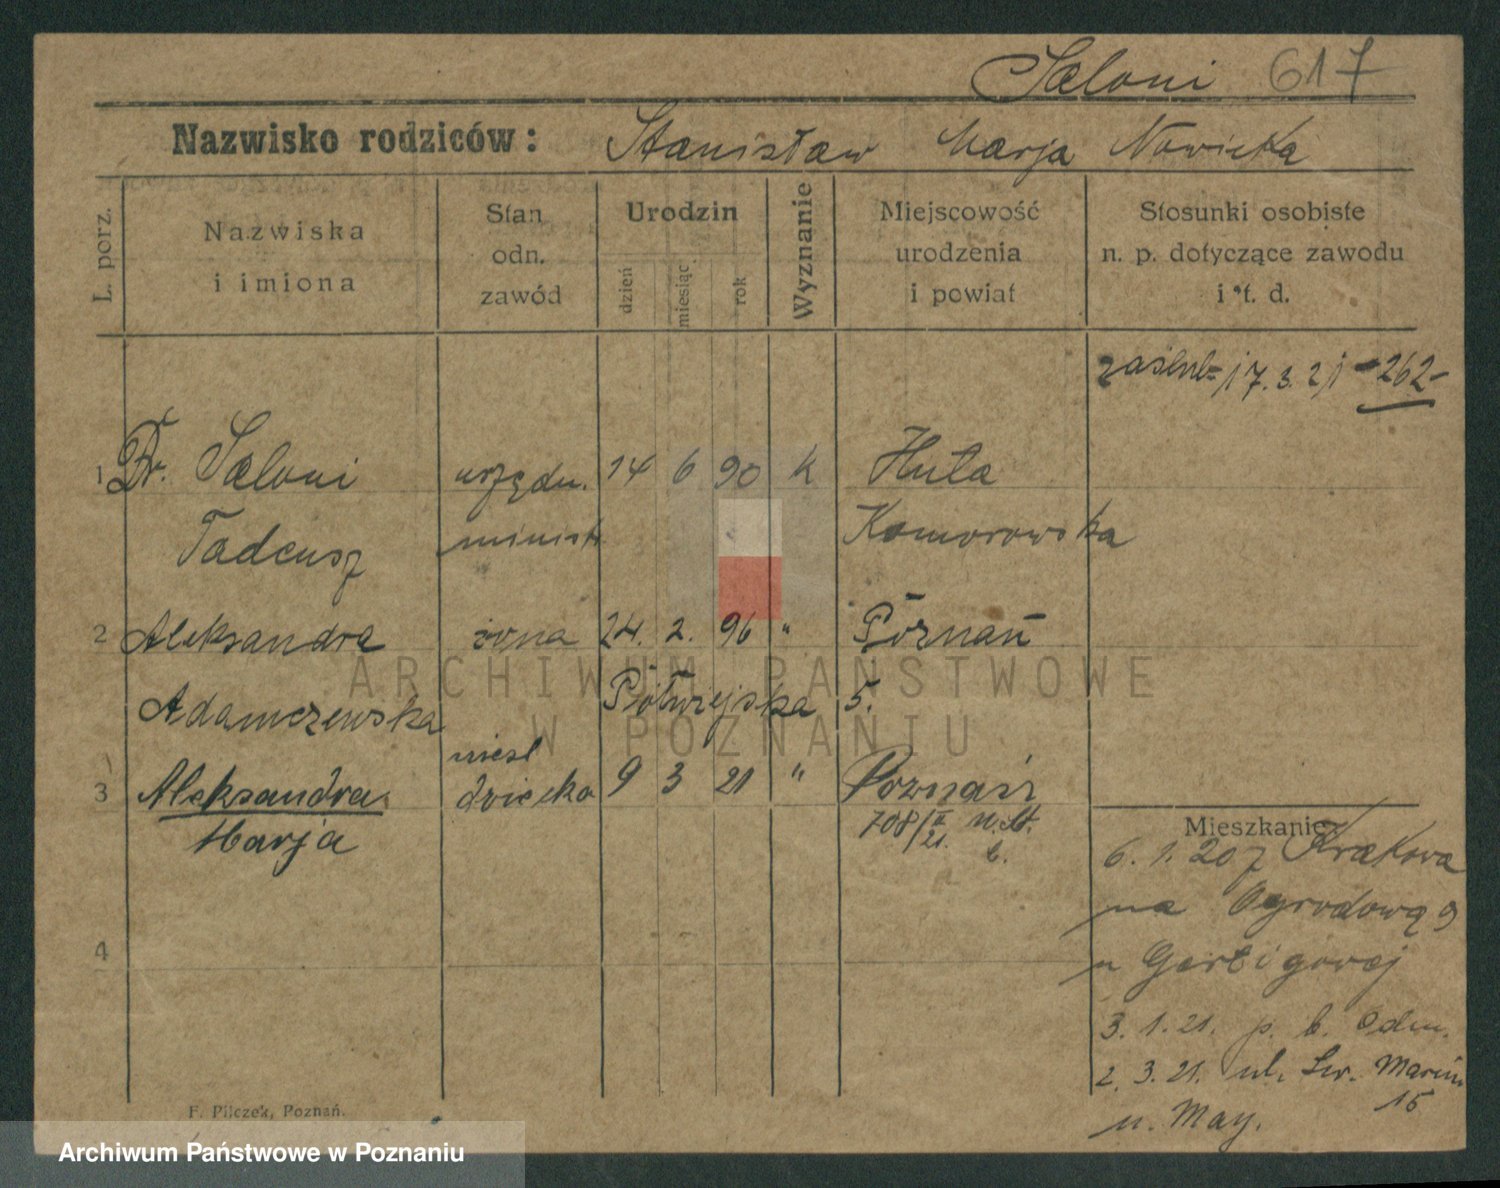 Saloni 617
Nazwisko rodziców: Stanisław Marja Nowicka
L. porz.
Nazwiska
i imiona
Stan
odn.
zawód
Urodzin
dzień
miesiąc
rok
Wyznanie
Miejscowość
urodzenia
i powiat
Stosunki osobiste
n. p. dotyczące zawodu
i t. d.
zaślub 17.3.21 - 262 -
1 Dr. Saloni urzędn. 14 6 90 k Huta
Tadeusz minist Komorowska
2 Aleksandra żona 24. 2. 96 " Poznań
Adamczewska Półwiejska 5.
3 Aleksandra dziecko 9 3 21 " Poznań
Marja 708/II 21.
4
Mieszkanie
6. 1. 20 z Krakowa
na Ogrodową 9
u
3. 1. 21. p. b. Odm.
2. 3. 21. ul. Św. Marcin
15
u. May.
F. Pilczek, Poznań.
ARCHIWUM PAŃSTWOWE
W POZNANIU
Archiwum Państwowe w Poznaniu